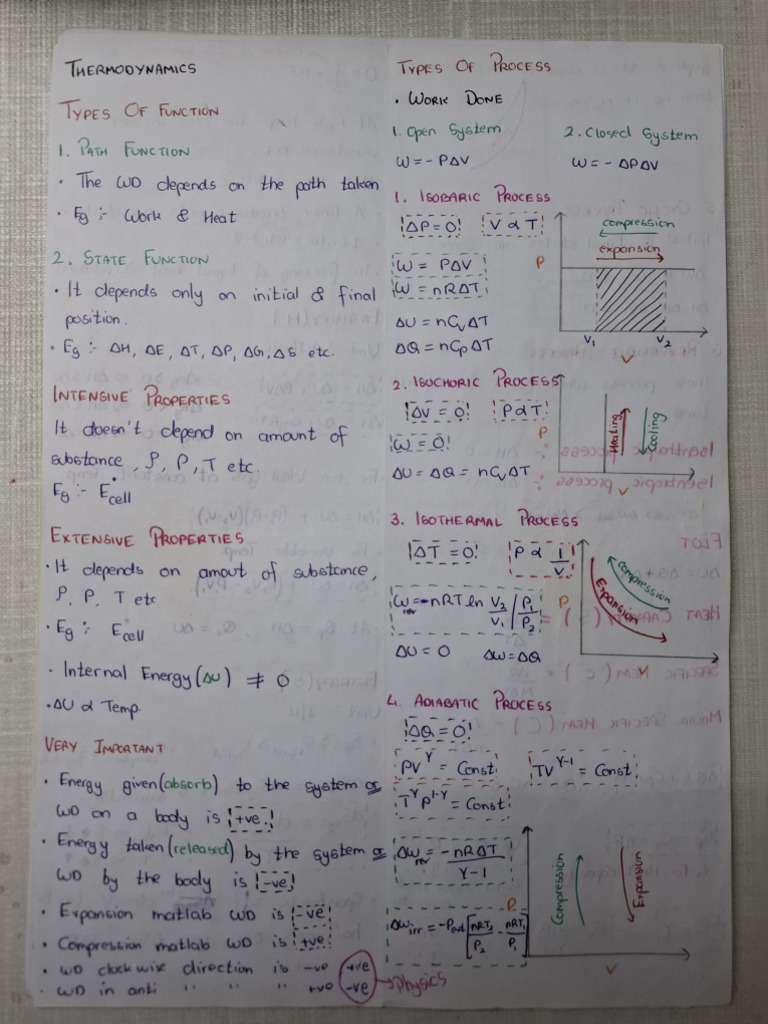 THERMODYNAMICS
TYPES OF FUNCTION
1. PATH FUNCTION
• The WD depends on the path taken
• Eg :- Work & Heat
2. STATE FUNCTION
• It depends only on initial & final
position.
• Eg :- ΔH, ΔE, ΔT, ΔP, ΔG, ΔS etc.
INTENSIVE PROPERTIES
It doesn't depend on amount of
substance, ρ, P, T etc
Eg :- E°cell
EXTENSIVE PROPERTIES
• It depends on amout of substance,
ρ, P, T etc
• Eg :- Ecell
• Internal Energy (ΔU) ≠ 0
• ΔU α Temp.
VERY IMPORTANT
• Energy given (absorb) to the system or
WD on a body is +ve.
• Energy taken (released) by the system or
WD by the body is -ve
• Expansion matlab WD is -ve
• Compression matlab WD is +ve
• WD clockwise direction is -ve +ve
• WD in anti " " " +ve -ve → physics
TYPES OF PROCESS
• WORK DONE
1. Open System
W = - PΔV
2. Closed System
W = - ΔPΔV
1. ISOBARIC PROCESS
ΔP = 0 V α T
W = PΔV
W = nRΔT
ΔU = nCvΔT
ΔQ = nCpΔT
compression
expansion
P
V1 V2
V
2. ISOCHORIC PROCESS
ΔV = 0 P α T
W = 0
ΔU = ΔQ = nCvΔT
P
Heating
Cooling
V
3. ISOTHERMAL PROCESS
ΔT = 0 P α 1/V
Wrev = -nRT ln V2/V1 / P1/P2
ΔU = 0 ΔW = ΔQ
P
Compression
Expansion
V
4. ADIABATIC PROCESS
ΔQ = 0
PV^γ = Const TV^γ-1 = Const
T^γ P^1-γ = Const
ΔWrev = -nRΔT / γ-1
ΔWirr = -Pext [nRT2/P2 - nRT1/P1]
P
Compression
Expansion
V